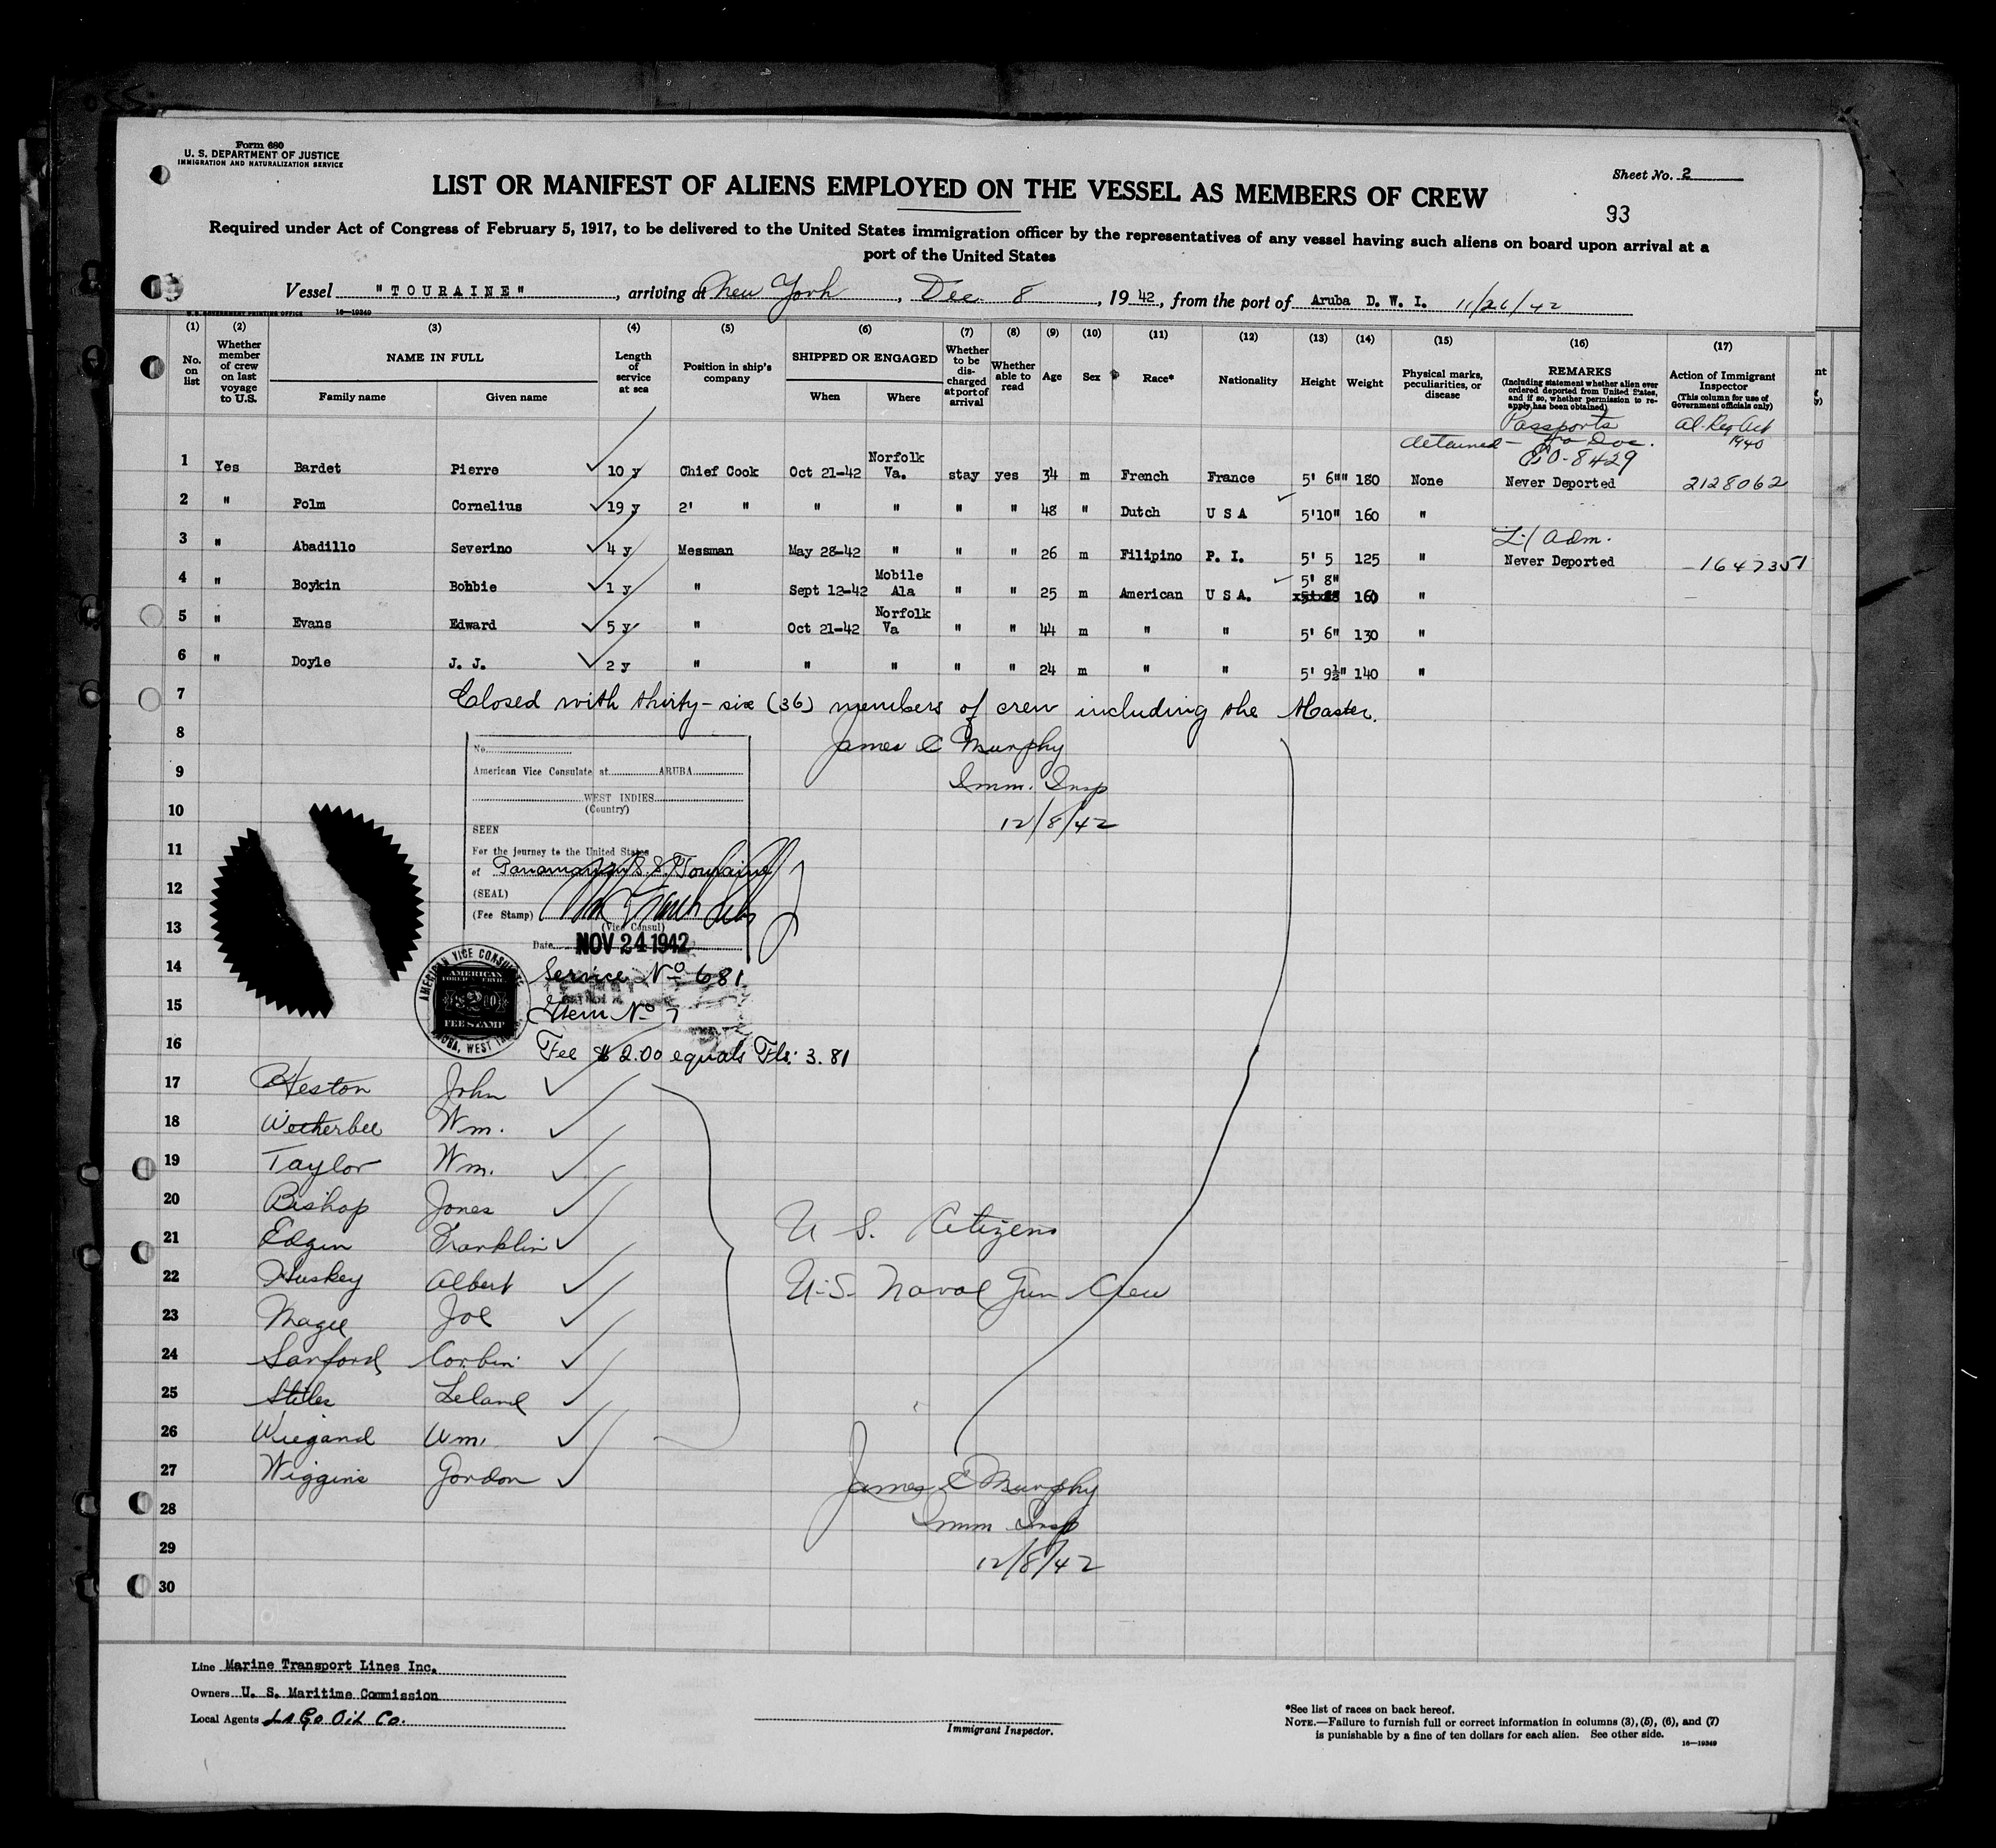 Form 680
U. S. DEPARTMENT OF JUSTICE
IMMIGRATION AND NATURALIZATION SERVICE
Sheet No. 2
LIST OR MANIFEST OF ALIENS EMPLOYED ON THE VESSEL AS MEMBERS OF CREW
93
Required under Act of Congress of February 5, 1917, to be delivered to the United States immigration officer by the representatives of any vessel having such aliens on board upon arrival at a
port of the United States
Vessel "TOURAINE", arriving at New York, Dec 8, 1942, from the port of Aruba D. W. I. 11/26/42
U.S. GOVERNMENT PRINTING OFFICE 16—19349
(1) (2) (3) (4) (5) (6) (7) (8) (9) (10) (11) (12) (13) (14) (15) (16) (17)
No. on list
Whether member of crew on last voyage to U.S.
NAME IN FULL
Family name Given name
Length of service at sea
Position in ship's company
SHIPPED OR ENGAGED
When Where
Whether to be discharged at port of arrival
Whether able to read
Age
Sex
Race*
Nationality
Height
Weight
Physical marks, peculiarities, or disease
REMARKS
(Including statement whether alien ever ordered deported from United States, and if so, whether permission to reapply has been obtained)
Action of Immigrant Inspector
(This column for use of Government officials only)
Passports Al. Reg Act
detained — No Doc. 1940
GO-8429
1 Yes Bardet Pierre 10 y Chief Cook Oct 21-42 Norfolk Va. stay yes 34 m French France 5' 6"" 180 None Never Deported 2128062
2 " Polm Cornelius 19 y 2' " " " " " 48 " Dutch U S A 5'10" 160 "
L/ Adm.
3 " Abadillo Severino 4 y Messman May 28-42 " " " 26 m Filipino P. I. 5' 5 125 " Never Deported 1647351
4 " Boykin Bobbie 1 y " Sept 12-42 Mobile Ala " " 25 m American U S A. 5' 8" 160 "
5 " Evans Edward 5 y " Oct 21-42 Norfolk Va " " 44 m " " 5' 6" 130 "
6 " Doyle J. J. 2 y " " " " " 24 m " " 5' 9½" 140 "
7 Closed with thirty-six (36) members of crew including the Master.
8 James C Murphy
9 Imm. Insp
10 12/8/42
No.
American Vice Consulate at ARUBA
WEST INDIES
(Country)
SEEN
11 For the journey to the United States
of Panamanian S.S. Touraine
12 (SEAL)
(Fee Stamp)
13 (Vice Consul)
Date NOV 24 1942
14 Service No 681
15 Item No 7
16 Fee $ 2.00 equals Fls. 3.81
AMERICAN VICE CONSULATE
ARUBA, WEST INDIES
AMERICAN
FOREIGN SERVICE
FEE STAMP
17 Heston John
18 Wetherbee Wm.
19 Taylor Wm.
20 Bishop Jones
21 Edgin Franklin
22 Huskey Albert
23 Magee Joe
24 Sanford Corbin
25 Stiles Leland
26 Wiegand Wm.
27 Wiggins Gordon
U S. Citizens
U.S. Naval Gun Crew
James C Murphy
28 Imm Insp
29 12/8/42
30
Line Marine Transport Lines Inc.
Owners U. S. Maritime Commission
Local Agents LAGO OIL CO.
Immigrant Inspector.
*See list of races on back hereof.
NOTE.—Failure to furnish full or correct information in columns (3), (5), (6), and (7)
is punishable by a fine of ten dollars for each alien. See other side.
16—19349